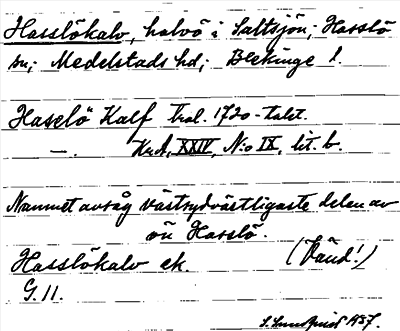 Hasslökalv, halvö i Saltsjön; Hasslö
sn; Medelstads hd; Blekinge l.
Haselö Kalf trol. 1720-talet.
—. Kr.A, XXIV, N:o IX, lit. b.
Namnet avsåg västsydvästligaste delen av
ön Hasslö.
Hasslökalv ek. (Vänd!)
G. 11.
S. Lundquist 1937.